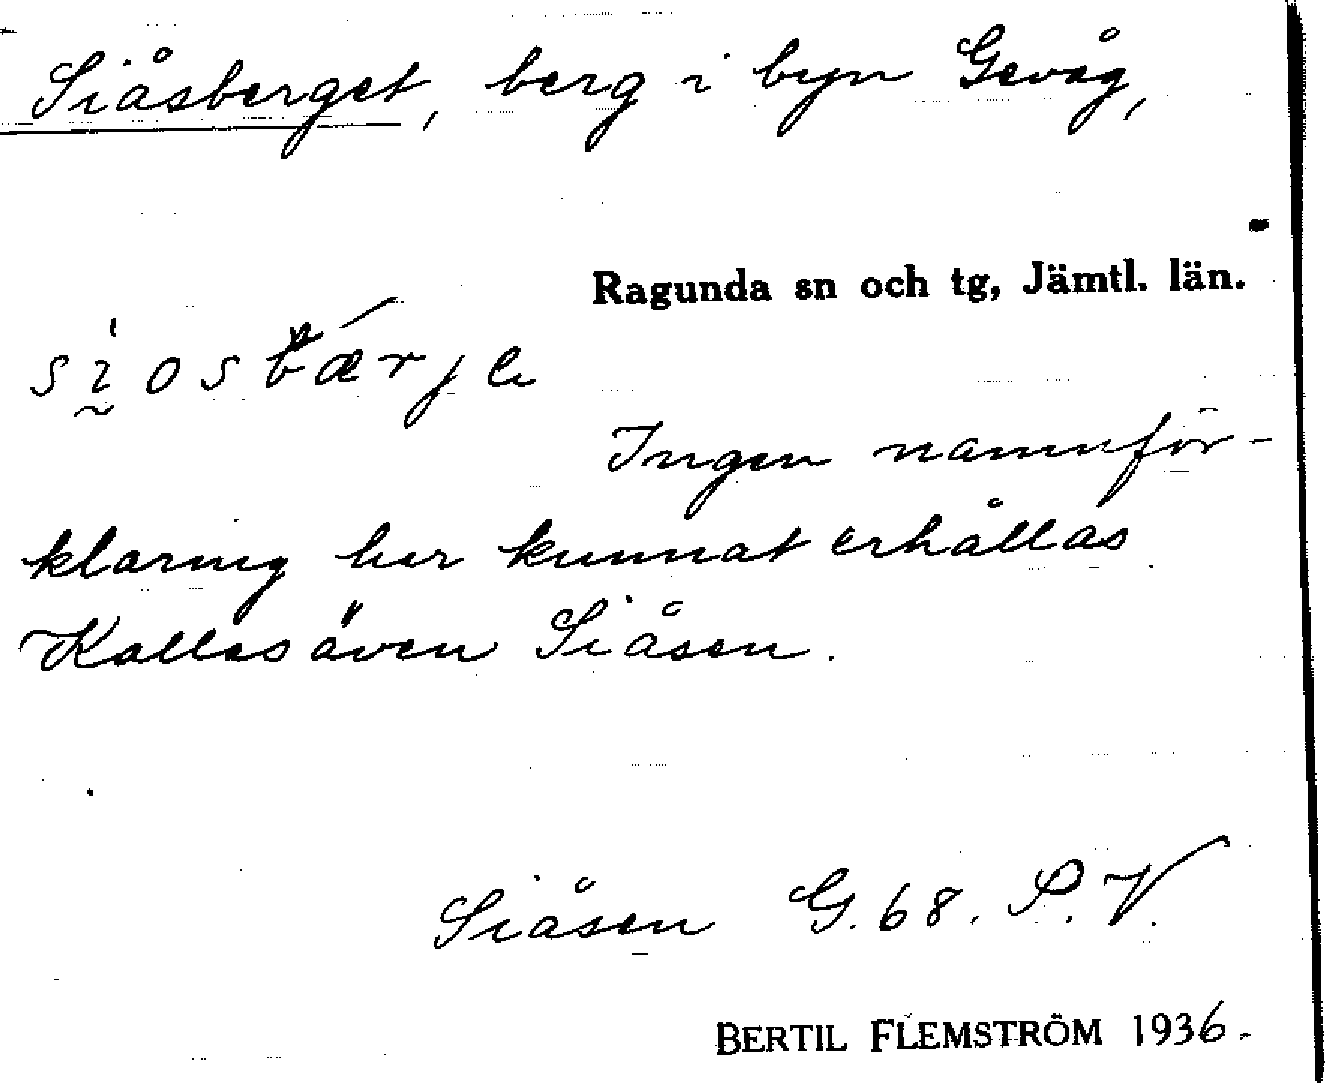 Siåsberget, berg i byn Gevåg,
Ragunda sn och tg, Jämtl. län.
siosbærje
Ingen namnför-
klaring har kunnat erhållas
Kallas även Siåsen.
Siåsen G. 68. P. V.
BERTIL FLEMSTRÖM 1936.